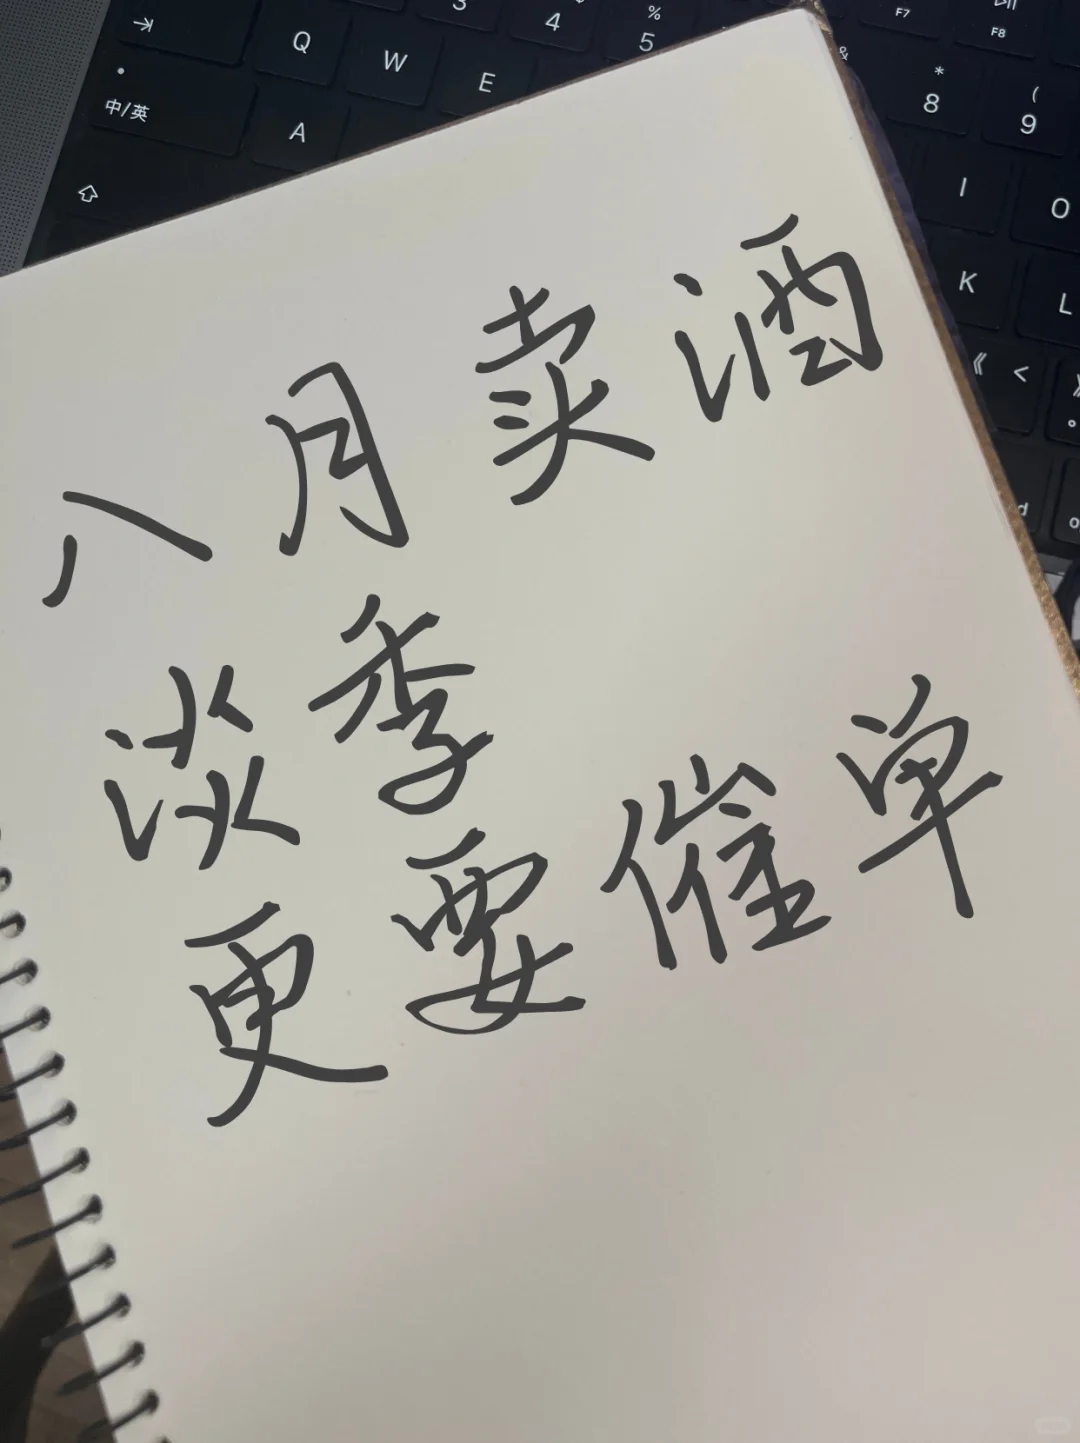 3 4 % 5 F7 F8
Q W E & * 8 ( 9
中/英 A I O
K L
《 <
八月卖酒
淡季
更要催单